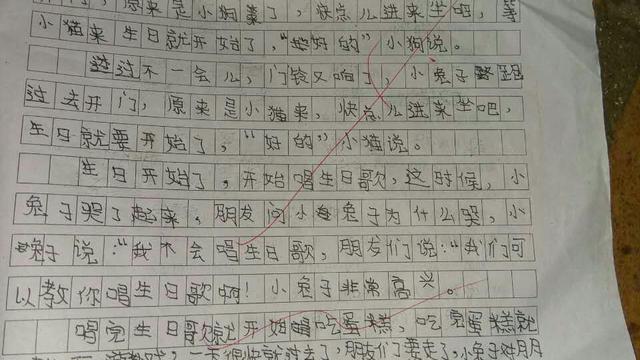 开门，原来是小狗来了，快点儿进来坐吧，等
小猫来生日就开始了，“好的”小狗说。
过不一会儿，门铃又响了，小兔子跑
过去开门，原来是小猫来，快点儿进来坐吧，
生日就要开始了，“好的”小猫说。
生日开始了，开始唱生日歌，这时候，小
兔子哭了起来，朋友问小兔子为什么哭，小
兔子说：“我不会唱生日歌，朋友们说：“我们可
以教你唱生日歌啊！小兔子非常高兴。
唱完生日歌就开始吃蛋糕，吃完蛋糕就
一天很快就过去了，朋友们要走了，小兔子对朋